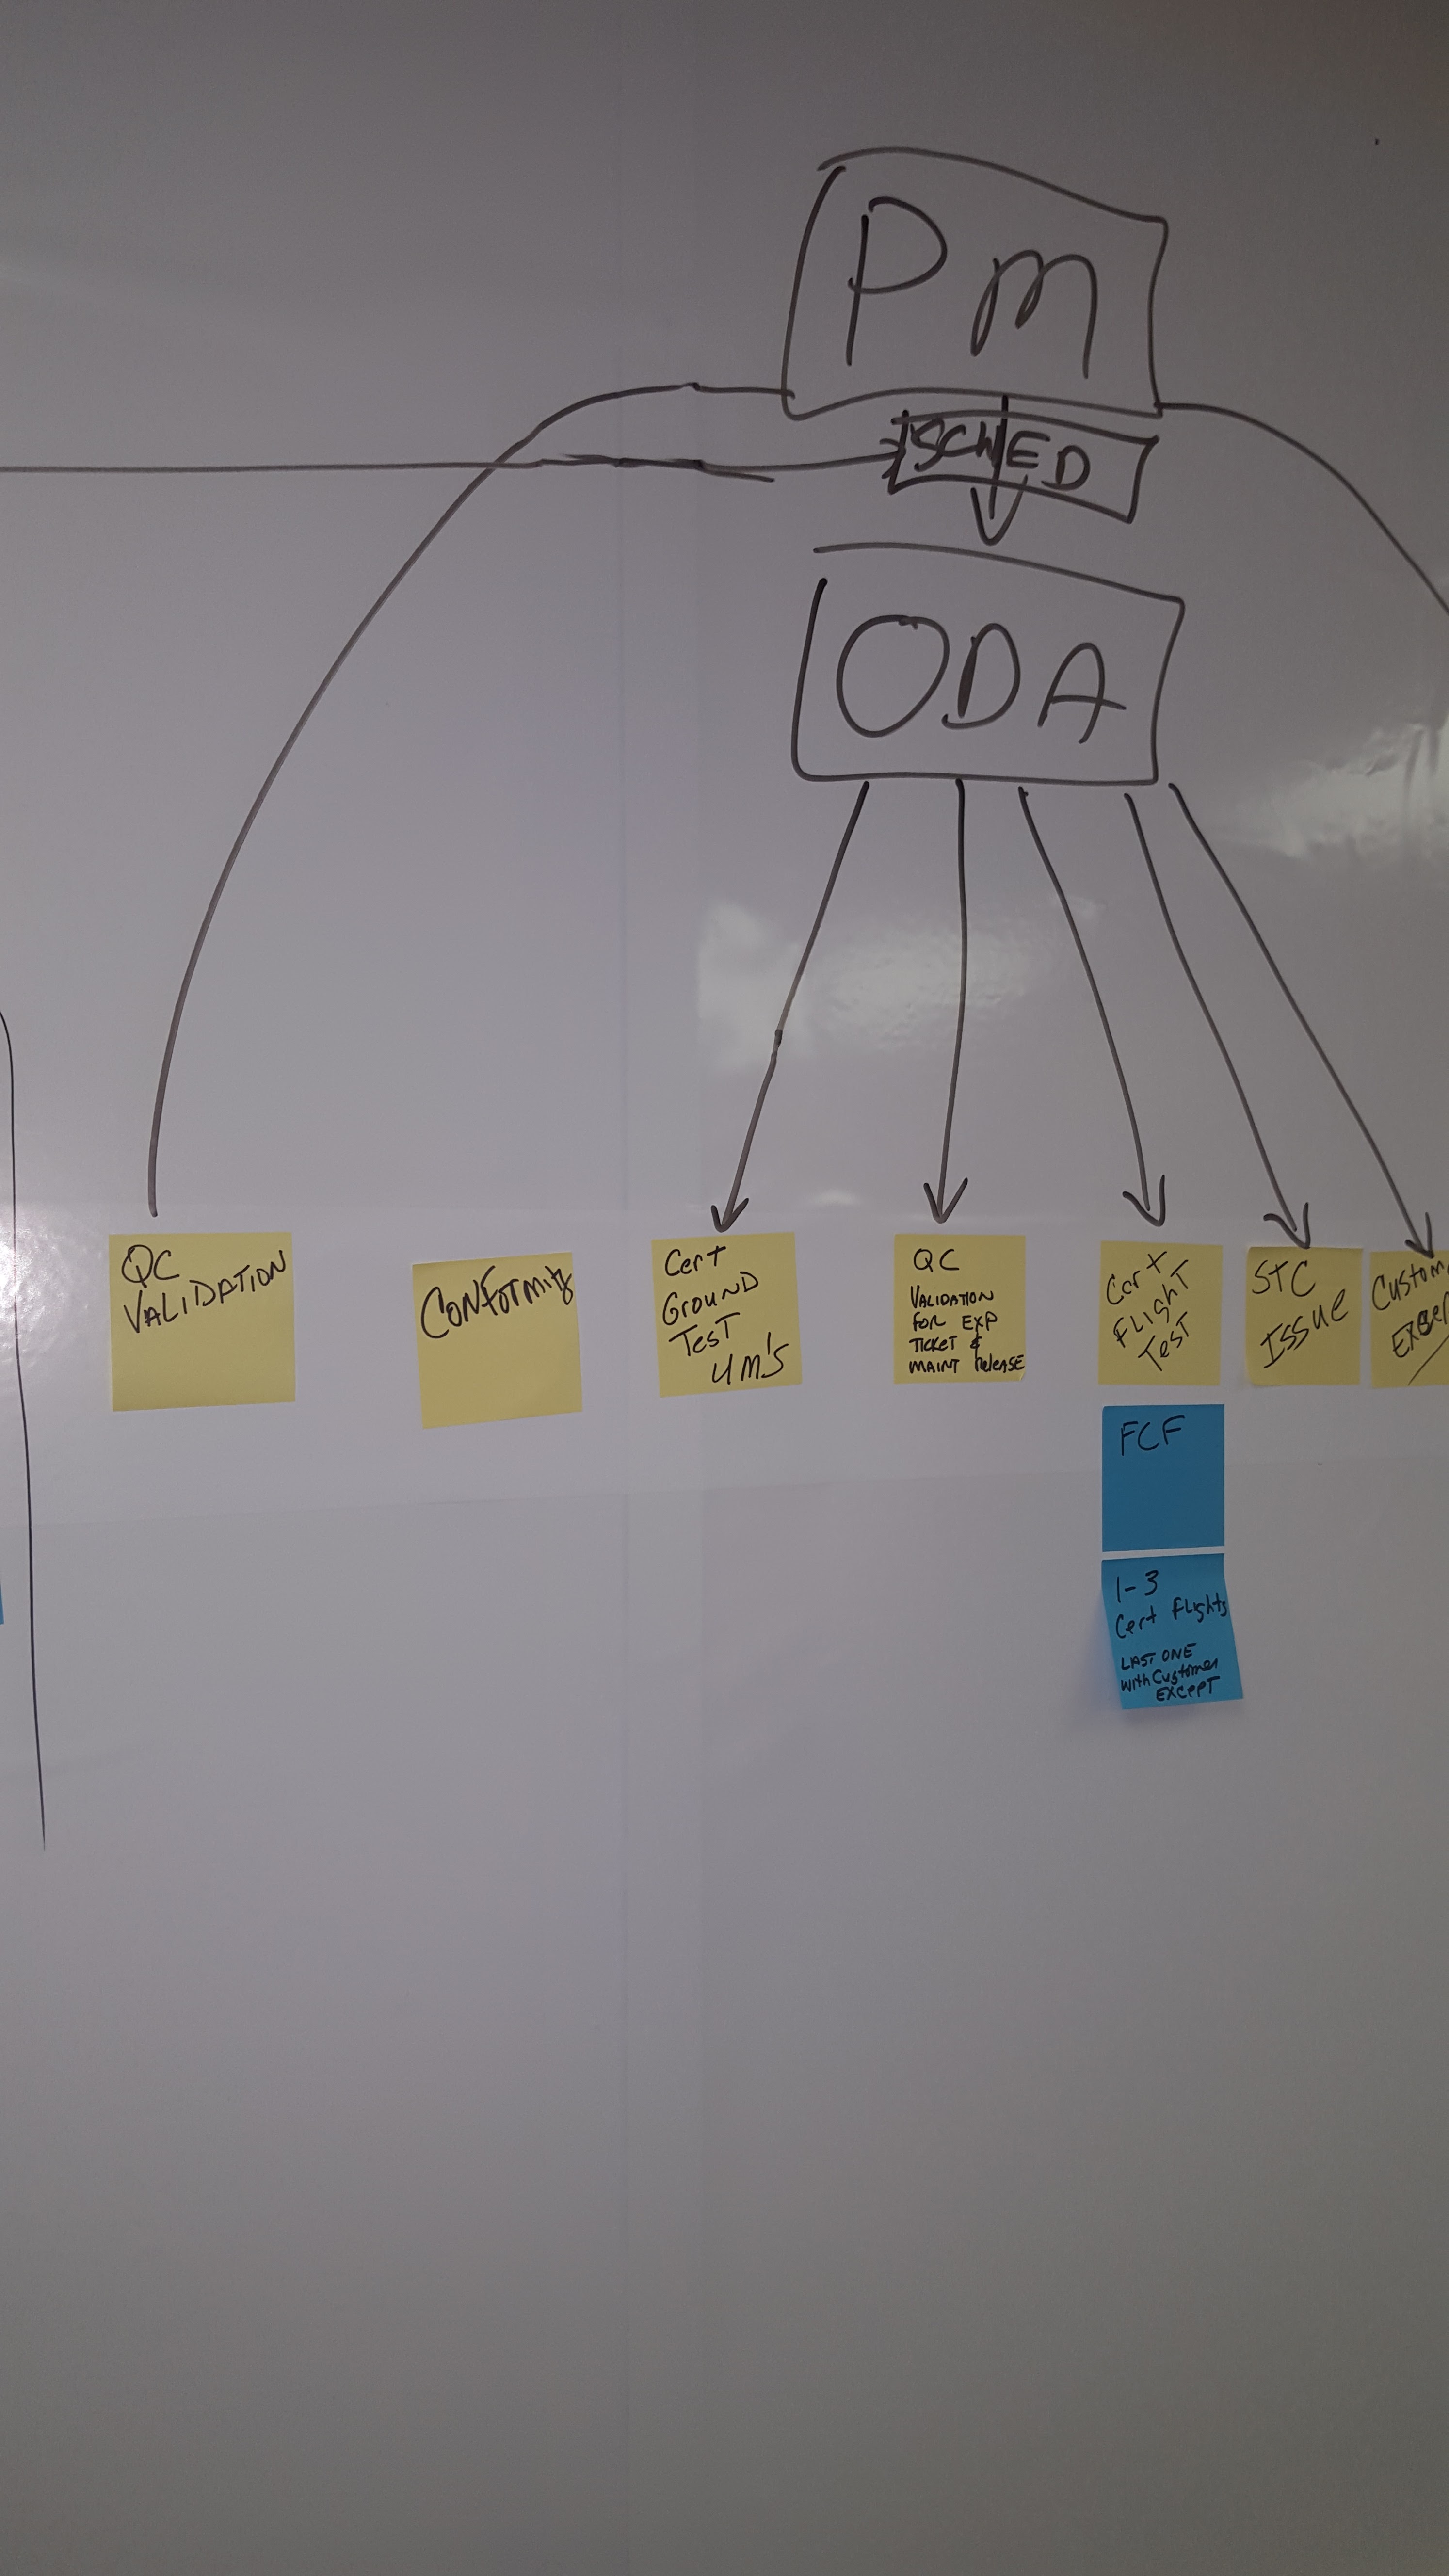 PM
SCHED
ODA
QC
VALIDATION
CONFORMITY
Cert
GROUND
TEST
UM'S
QC
VALIDATION
FOR EXP
TICKET &
MAINT RELEASE
Cert
FLIGHT
TEST
STC
ISSUE
Custom
EXCEP
FCF
1-3
Cert Flights
LAST ONE
With Customer
EXCEPT